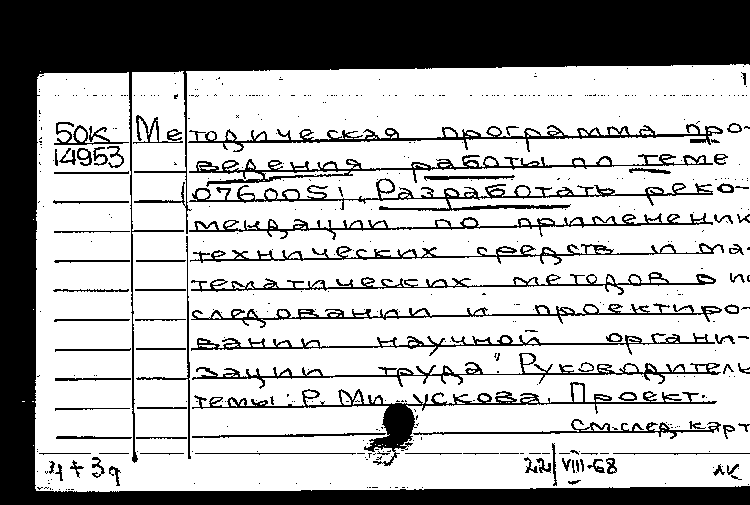 50К Методическая программа про-
14953 ведения работы по теме
(076005), "Разработать реко-
мендации по применению
технических средств и ма-
тематических методов в ис
следовании и проектиро-
вании научной органи-
зации труда". Руководитель
темы: Р. Ми ускова. Проект.
см.след.карт
4+3q 22 VIII-68 ЛК